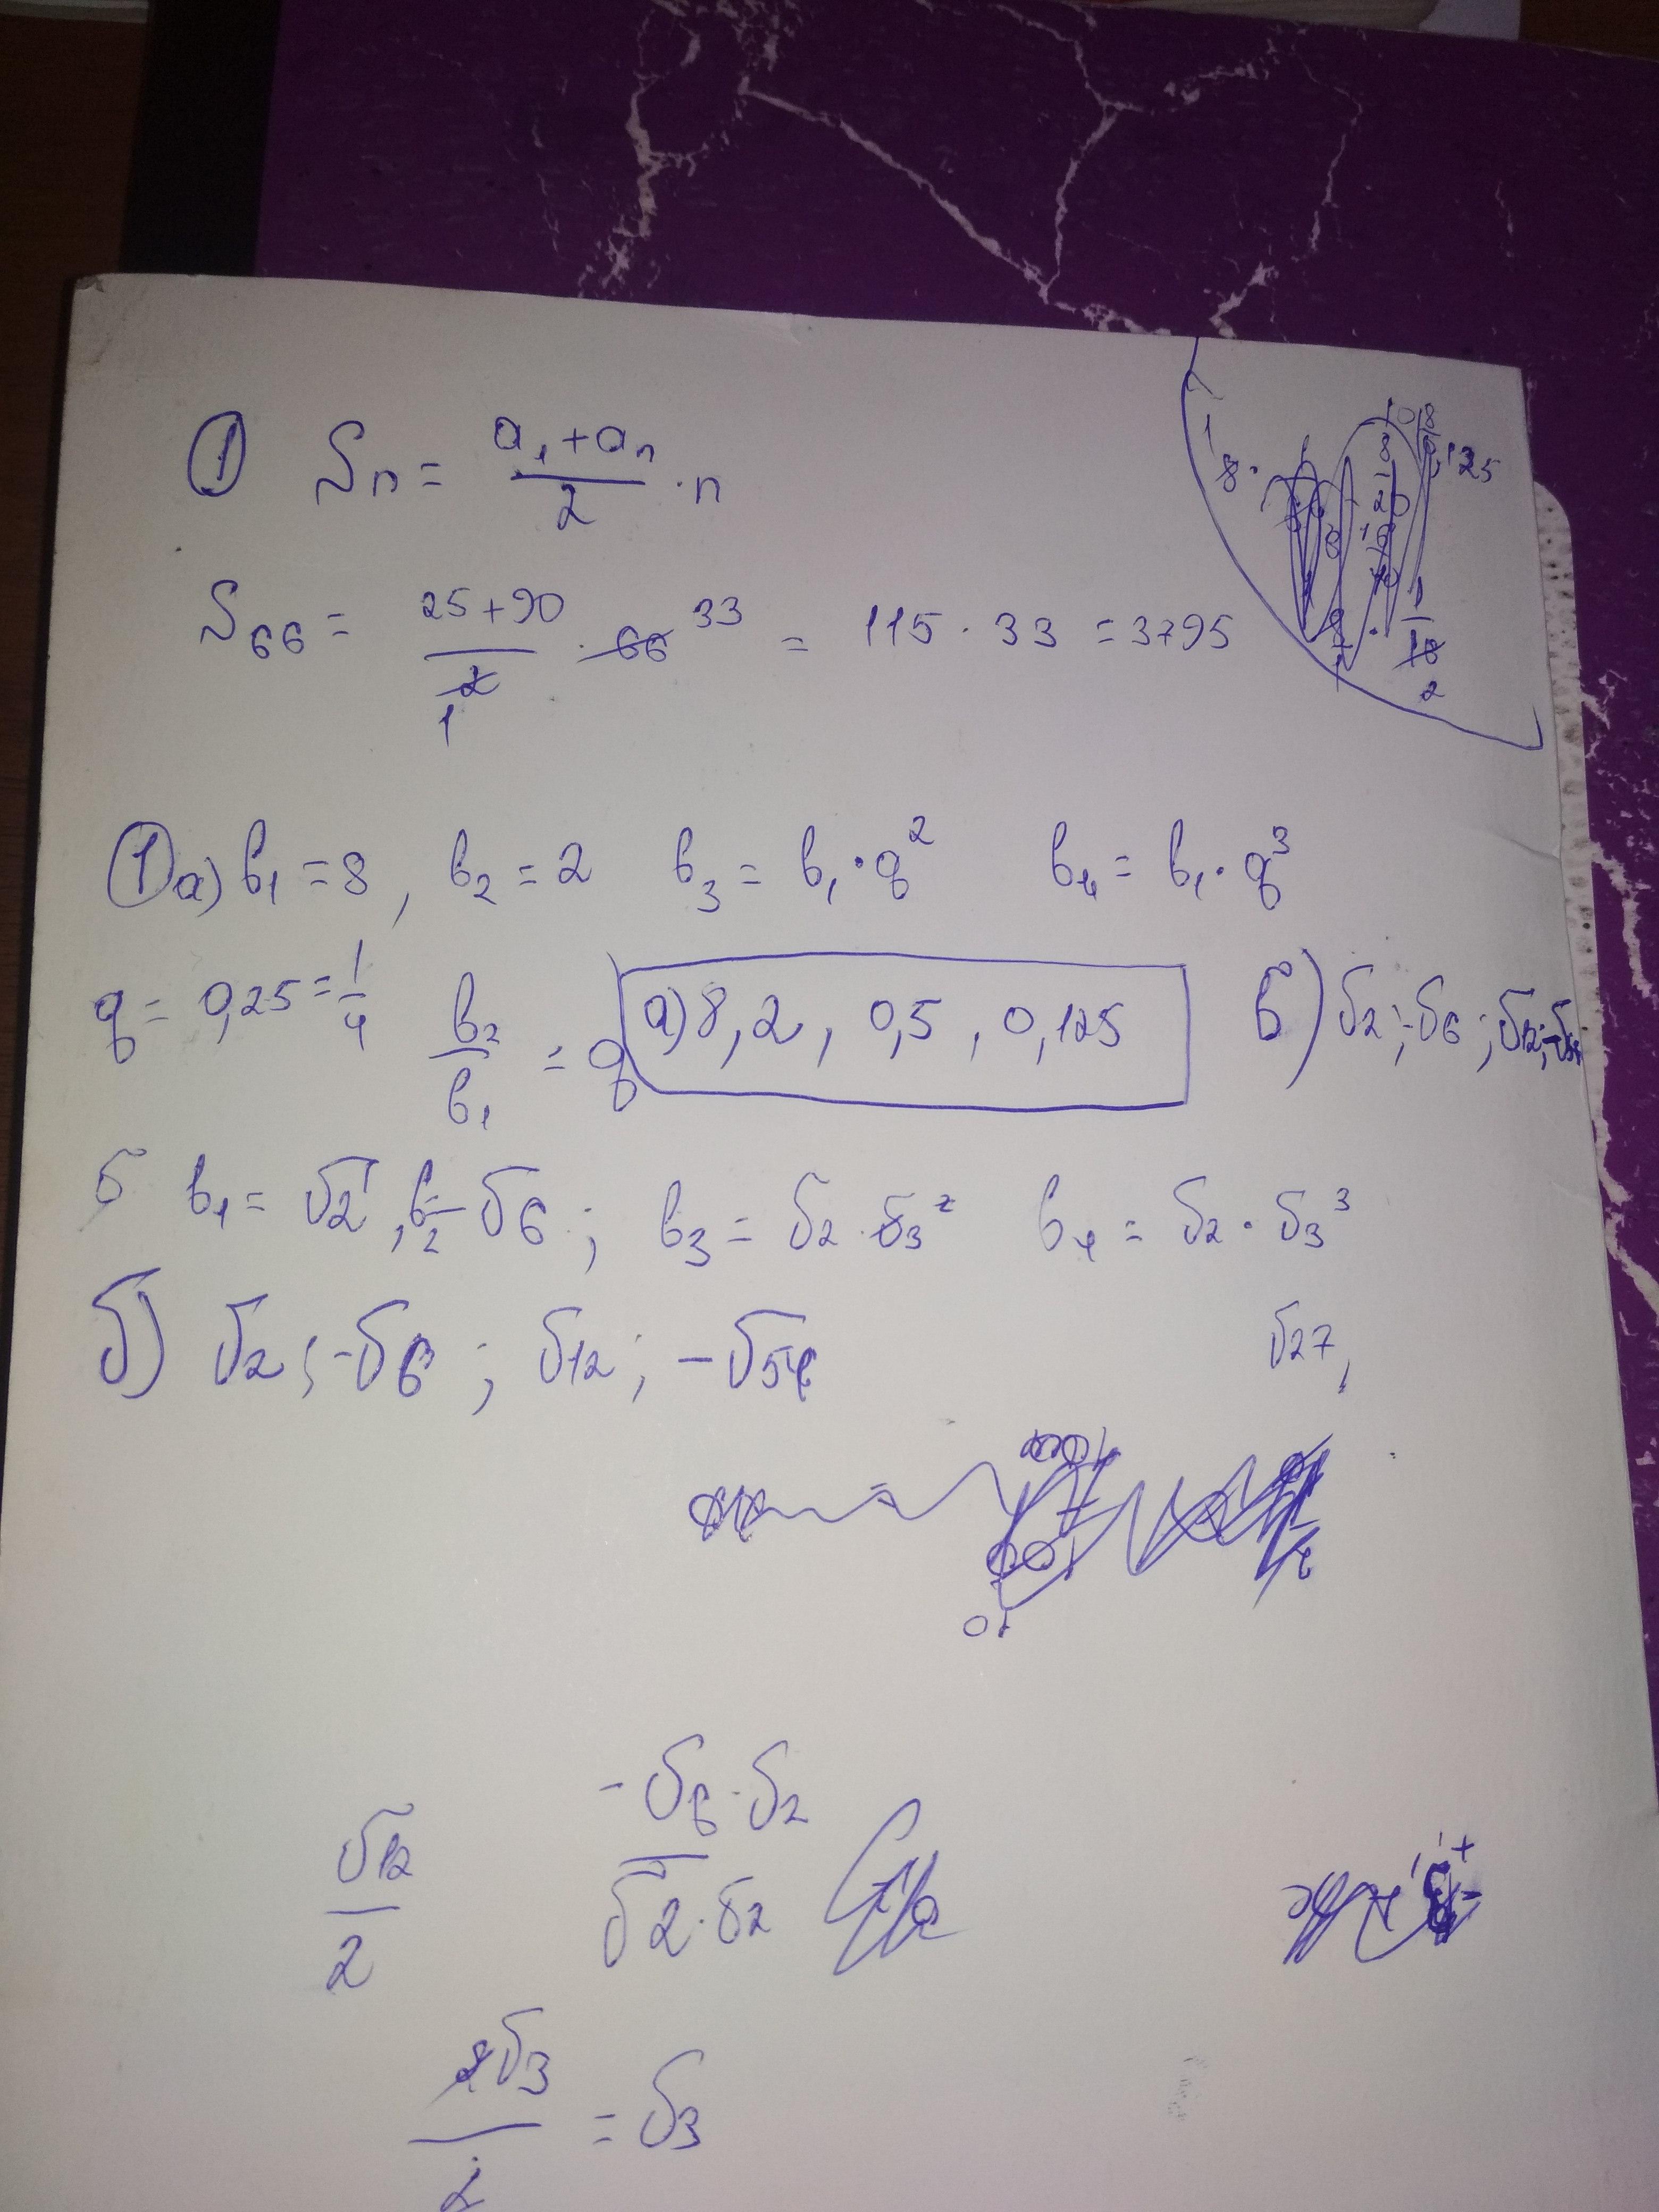 ① Sn = (a₁+aₙ)/2 · n
S₆₆ = (25+90)/2 · 66 33 = 115 · 33 = 3795
1
① а) b₁ = 8, b₂ = 2 b₃ = b₁ · q² b₄ = b₁ · q³
q = 0,25 = 1/4 b₂/b₁ = q а) 8, 2, 0,5, 0,125 б) √2; -√6; √12; -√54
б b₁ = √2, b₂ = -√6; b₃ = √2 · √3² b₄ = √2 · √3³
б) √2; -√6; √12; -√54 √27,
√12/2 -√6·√2/√2·√2
2√3/2 = √3